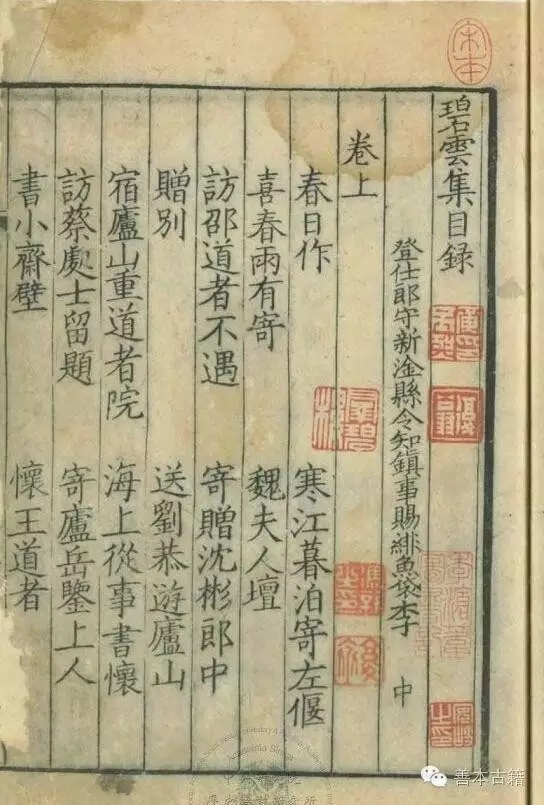 碧雲集目錄
登仕郎守新淦縣令知鎮事賜緋魚袋李 中
卷上
春日作 寒江暮泊寄左偃
喜春雨有寄 魏夫人壇
訪邵道者不遇 寄贈沈彬郎中
贈別 送劉恭遊廬山
宿廬山重道者院 海上從事書懷
訪蔡處士留題 寄廬岳鑒上人
書小齋壁 懷王道者
宋本
善本古籍